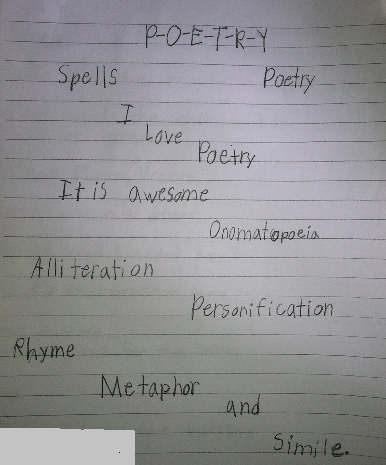 P-O-E-T-R-Y
Spells Poetry
I
Love
Poetry
It is awesome
Onomatopoeia
Alliteration
Personification
Rhyme
Metaphor
and
Simile.